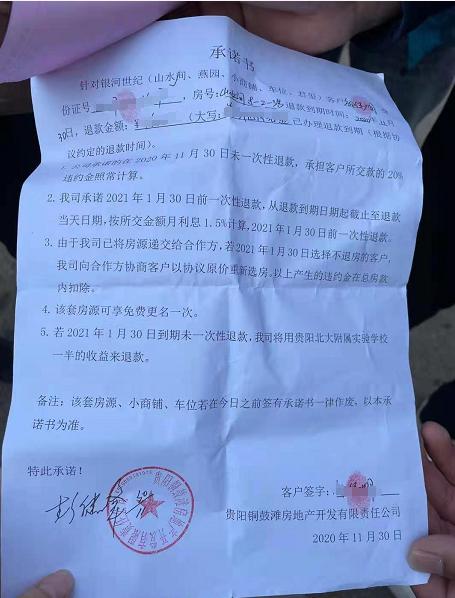 承诺书
针对银河世纪(山水间、燕园、小商铺、车位、君玺)客户
份证号 房号: 8-2- 退款到期时间: 2020年11月
30日,退款金额:¥ (大写: 已办理退款到期(根据协
议约定的退款时间)。
在2020年11月30日未一次性退款,承担客户所交款的20%
违约金照常计算。
2. 我司承诺2021年1月30日前一次性退款,从退款到期日期起截止至退款
当天日期,按所交金额月利息1.5%计算,2021年1月30日前一次性退款。
3. 由于我司已将房源递交给合作方,若2021年1月30日选择不退房的客户,
我司向合作方协商客户以协议原价重新选房。以上产生的违约金在总房款
内扣除。
4. 该套房源可享免费更名一次。
5. 若2021年1月30日到期未一次性退款,我司将用贵阳北大附属实验学校
一半的收益来退款。
备注:该套房源、小商铺、车位若在今日之前签有承诺书一律作废,以本承
诺书为准。
特此承诺!
客户签字:
贵阳铜鼓滩房地产开发有限责任公司
2020年11月30日